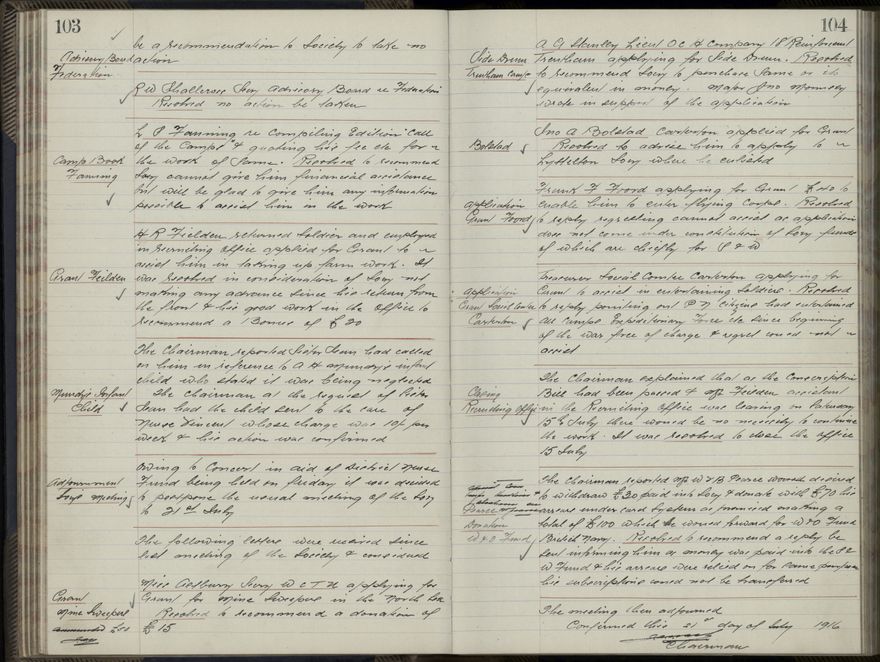 103
be a recommendation to Society to take no
Advisory Board action
Federation
R W Shallcrass Secy Advisory Board re Federation
Resolved no action be taken
L P Fanning re Compiling Edition "Call
of the Camps" & quoting his fee etc for
Camp Book the work of Same. Resolved to recommend
Fanning Socy cannot give him financial assistance
but will be glad to give him any information
possible to assist him in the work
H R Fielden returned Soldier and employed
in recruiting office applied for Grant to
assist him in taking up farm work. It
Grant Feilden was resolved in consideration of Socy not
making any advance since his return from
the front & his good work in the office to
recommend a Bonus of £20
The Chairman reported Sister Jean had called
on him in reference to A H Mundys infant
child who stated it was being neglected
Mundys Infant The Chairman at the request of Sister
Child Jean had the child sent to the care of
Nurse Vincent whose charge was 10/- per
week & his action was confirmed
Owing to Concert in aid of District Nurse
Adjournment Fund being held on Friday it was decided
Socys Meeting to postpone the usual meeting of the Socy
to 21st July
The following letters were received since
last meeting of the Society & considered
Miss Asbury Secy W C T U applying for
Grant Grant for Mine Sweepers in the North Sea
Mine Sweepers Resolved to recommend a donation of
£15
104
A G Stanley Lieut O C A Company 18 Reinforcmt
Side Drum Trentham applying for Side Drum. Resolved
Trentham Camp to recommend Socy to purchase Same or its
equivalent in money. Major Jno
wrote in support of the application
Jno A Bolstad Carterton applied for Grant
Bolstad Resolved to advise him to apply to
Lyttelton Socy where he enlisted
Frank F Foord applying for Grant £40 to
application enable him to enter flying Corps. Resolved
Grant Foord to reply regretting cannot assist as application
does not come under constitution of Socy funds
of which are chiefly for S & W
Treasurer Social Comtee Carterton applying for
application Grant to assist in entertaining Soldiers. Resolved
Grant Social Comtee to reply pointing out P N Citizens had entertained
Carterton all Camps Expeditionary Force etc since beginning
of the war free of charge & regret could not
assist
The Chairman explained that as the Conscription
Closing Bill had been passed & Mr Feilden assistant
Recruiting Office in the Recruiting Office was leaving on Saturday
15th July there would be no necessity to continue
the work. It was resolved to close the office
15 July
The Chairman reported Mr W & B Pearce would desired
to withdraw £30 paid into Socy & donate with £70 his
Pearce arrears under card System as promised making a
Donation total of £100 which he would forward for W & O Fund
W & O Fund British Navy. Resolved to recommend a reply be
sent informing him as money was paid into the S &
W Fund & his arrears were relied on for same purpose
his subscriptions could not be transferred
The meeting then adjourned
Confirmed this 21st day of July 1916
Chairman